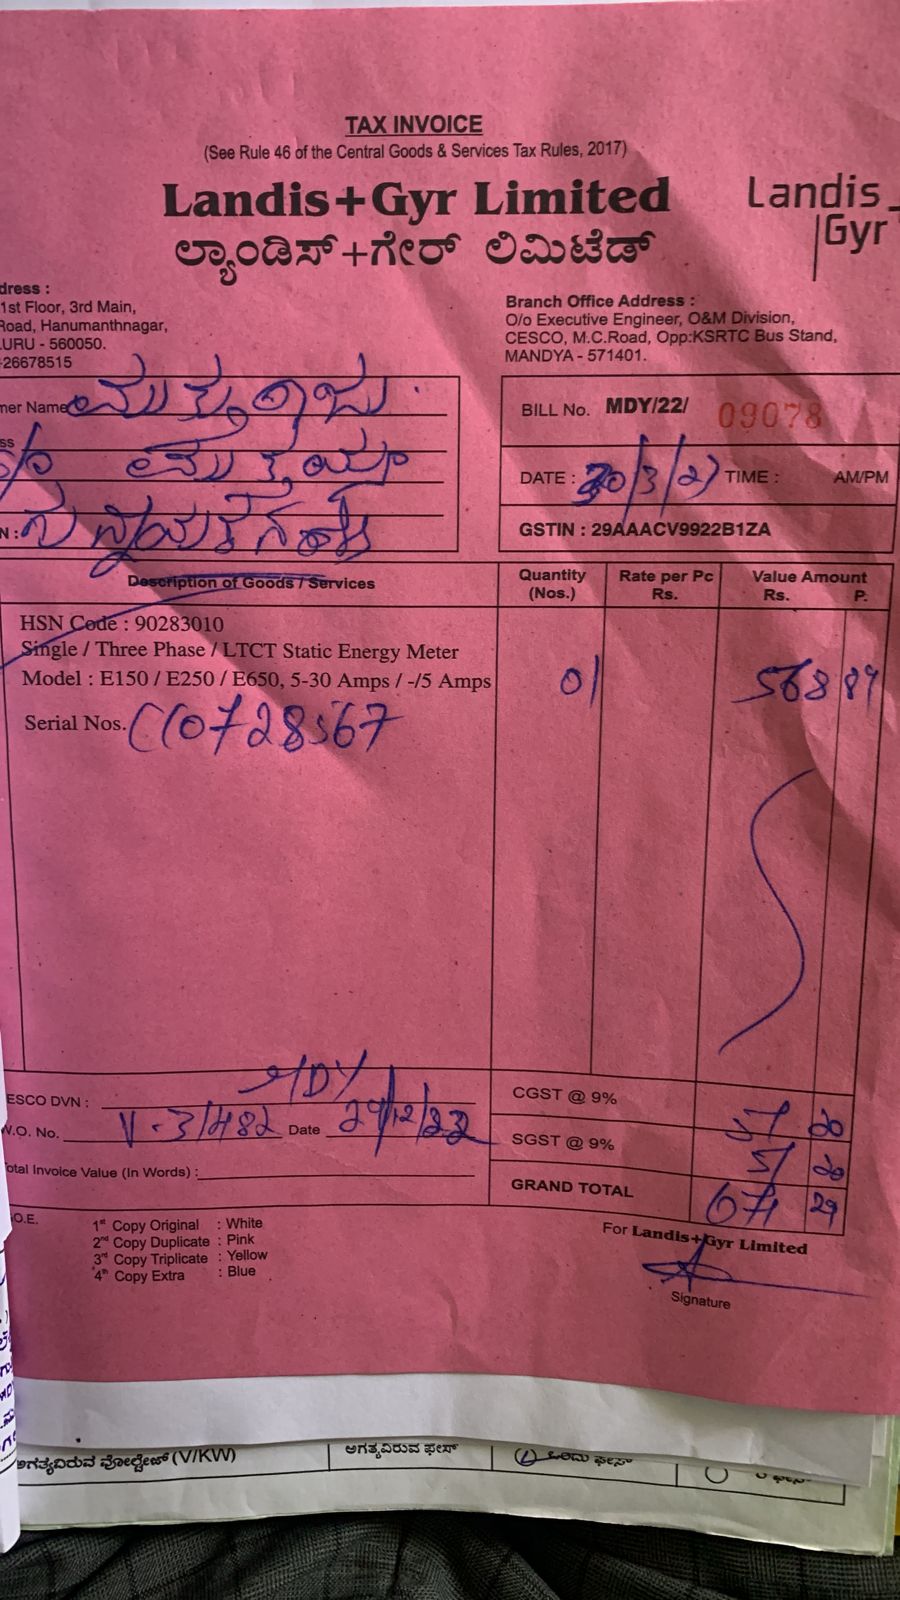 TAX INVOICE
(See Rule 46 of the Central Goods & Services Tax Rules, 2017)
Landis+Gyr Limited
ಲ್ಯಾಂಡಿಸ್+ಗೇರ್ ಲಿಮಿಟೆಡ್
Landis
Gyr
dress :
1st Floor, 3rd Main,
Road, Hanumanthnagar,
URU - 560050.
26678515
Branch Office Address :
O/o Executive Engineer, O&M Division,
CESCO, M.C.Road, Opp:KSRTC Bus Stand,
MANDYA - 571401.
mer Name ಮುತ್ತುರಾಜು
ss
N :
BILL No. MDY/22/ 09078
DATE : TIME : AM/PM
GSTIN : 29AAACV9922B1ZA
Description of Goods / Services
Quantity (Nos.)
Rate per Pc Rs.
Value Amount Rs. P.
HSN Code : 90283010
Single / Three Phase / LTCT Static Energy Meter
Model : E150 / E250 / E650, 5-30 Amps / -/5 Amps 01 568 89
Serial Nos.
ESCO DVN : MDY
W.O. No. V-31482 Date 29/12/22
otal Invoice Value (In Words) :
CGST @ 9% 51 20
SGST @ 9% 51 20
GRAND TOTAL 671 29
.O.E.
1st Copy Original : White
2nd Copy Duplicate : Pink
3rd Copy Triplicate : Yellow
4th Copy Extra : Blue
For Landis+Gyr Limited
Signature
ಅಗತ್ಯವಿರುವ ವೋಲ್ಟೇಜ್ (V/KW)
ಅಗತ್ಯವಿರುವ ಫೇಸ್
ಒಂದು ಫೇಸ್